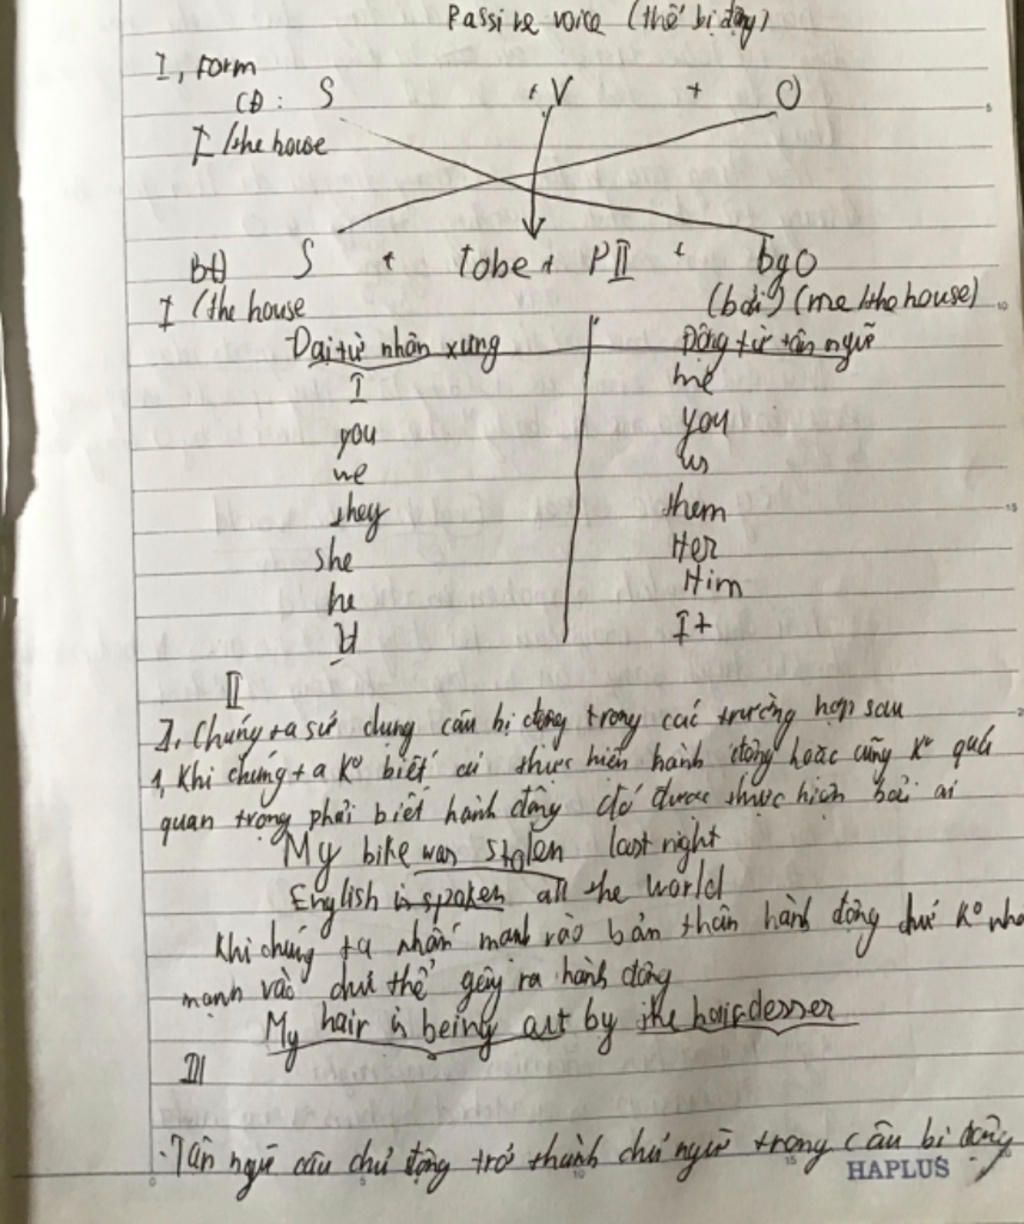 Passive voice (thể bị động)
I, Form
CĐ: S + V + O
I /the house
bđ S + Tobe + PII + by O
I (the house (bởi) (me /the house)
Đại từ nhân xưng Động từ tân ngữ
I me
you you
we us
they them
she Her
he Him
It It
II
I, Chúng ta sử dụng câu bị động trong các trường hợp sau
1, Khi chúng ta K° biết ai thực hiện hành động hoặc cũng K° quá
quan trọng phải biết hành động đó được thực hiện bởi ai
My bike was stolen last night
English is spoken all the world
Khi chúng ta nhấn mạnh vào bản thân hành động chứ K° nhấ
mạnh vào chủ thể gây ra hành động
My hair is being cut by the hairdesser
III
. Tân ngữ câu chủ động trở thành chủ ngữ trong câu bị động
HAPLUS